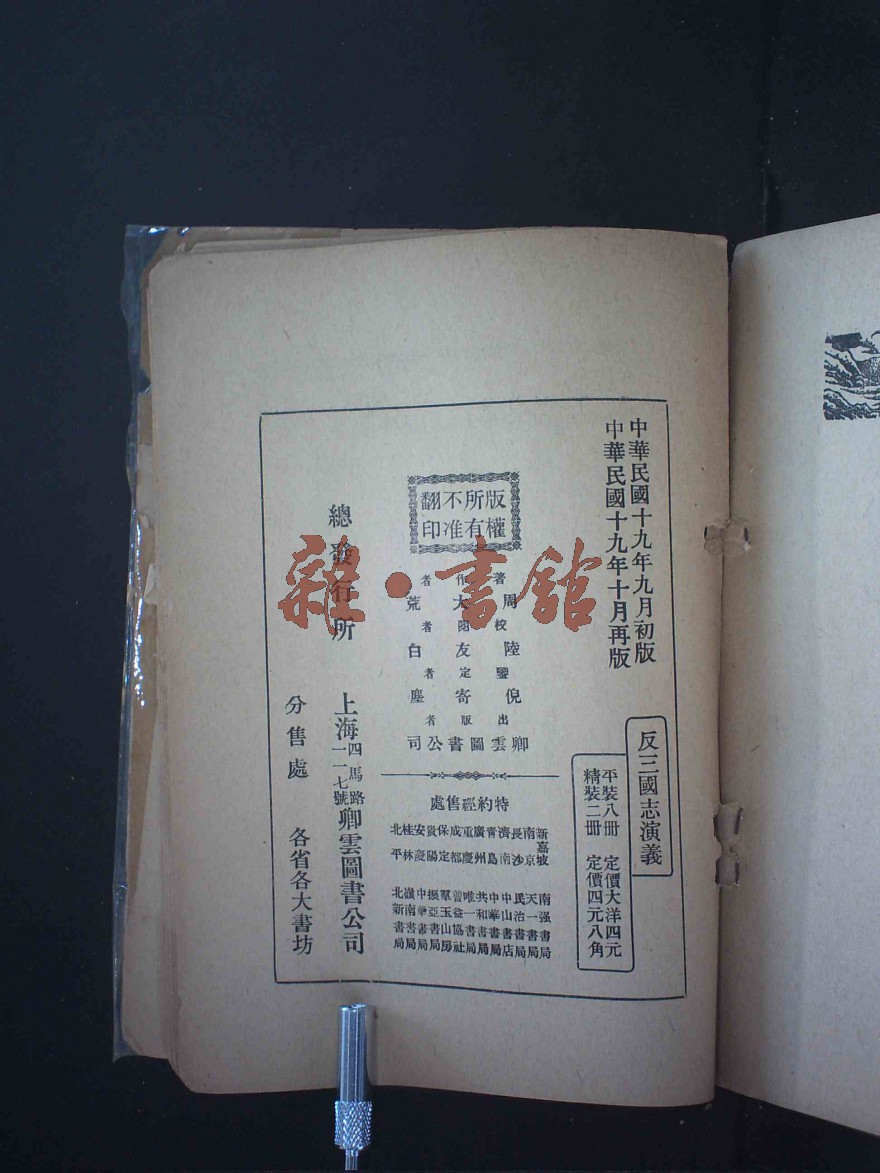 中華民國十九年九月初版
中華民國十九年十月再版
反三國志演義
平裝八冊 定價大洋四元
精裝二冊 定價四元八角
版權
所有
不准
翻印
著作者
周大荒
校閱者
陸友白
鑒定者
倪寄塵
出版者
卿雲圖書公司
特約經售處
新嘉坡 南强書局
南京 天一書局
長沙 民治書局
濟南 中山書店
青島 中華書局
廣州 共和書局
重慶 唯一書局
成都 普益協社
保定 羣玉山房
貴陽 振亞書局
安慶 中華書局
桂林 嶺南書局
北平 北新書局
總發行所 上海四馬路一一七號卿雲圖書公司
分售處 各省各大書坊
雜·書館